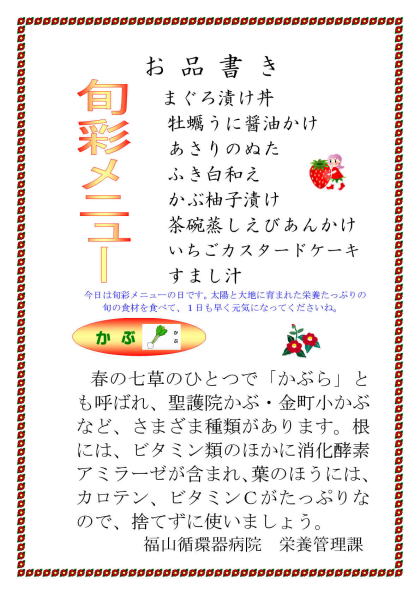 お品書き
旬彩メニュー
まぐろ漬け丼
牡蠣うに醤油かけ
あさりのぬた
ふき白和え
かぶ柚子漬け
茶碗蒸しえびあんかけ
いちごカスタードケーキ
すまし汁
今日は旬彩メニューの日です。太陽と大地に育まれた栄養たっぷりの
旬の食材を食べて、１日も早く元気になってくださいね。
かぶ
かぶ
春の七草のひとつで「かぶら」と
も呼ばれ、聖護院かぶ・金町小かぶ
など、さまざま種類があります。根
には、ビタミン類のほかに消化酵素
アミラーゼが含まれ、葉のほうには、
カロテン、ビタミンＣがたっぷりな
ので、捨てずに使いましょう。
福山循環器病院　栄養管理課